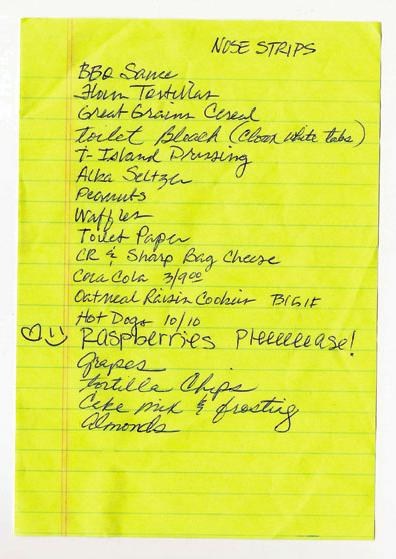 NOSE STRIPS
BBQ Sauce
Flour Tortillas
Great Grains Cereal
toilet Bleach (Clorox white tabs)
T-Island Dressing
Alka Seltzer
Peanuts
Waffles
Toilet Paper
CR & Sharp Bag Cheese
Coca Cola 3/9.00
Oatmeal Raisin Cookies B1G1F
Hot Dogs 10/10
♡☺ Raspberries Pleeeeease!
Grapes
tortilla Chips
Cake mix & frosting
Almonds